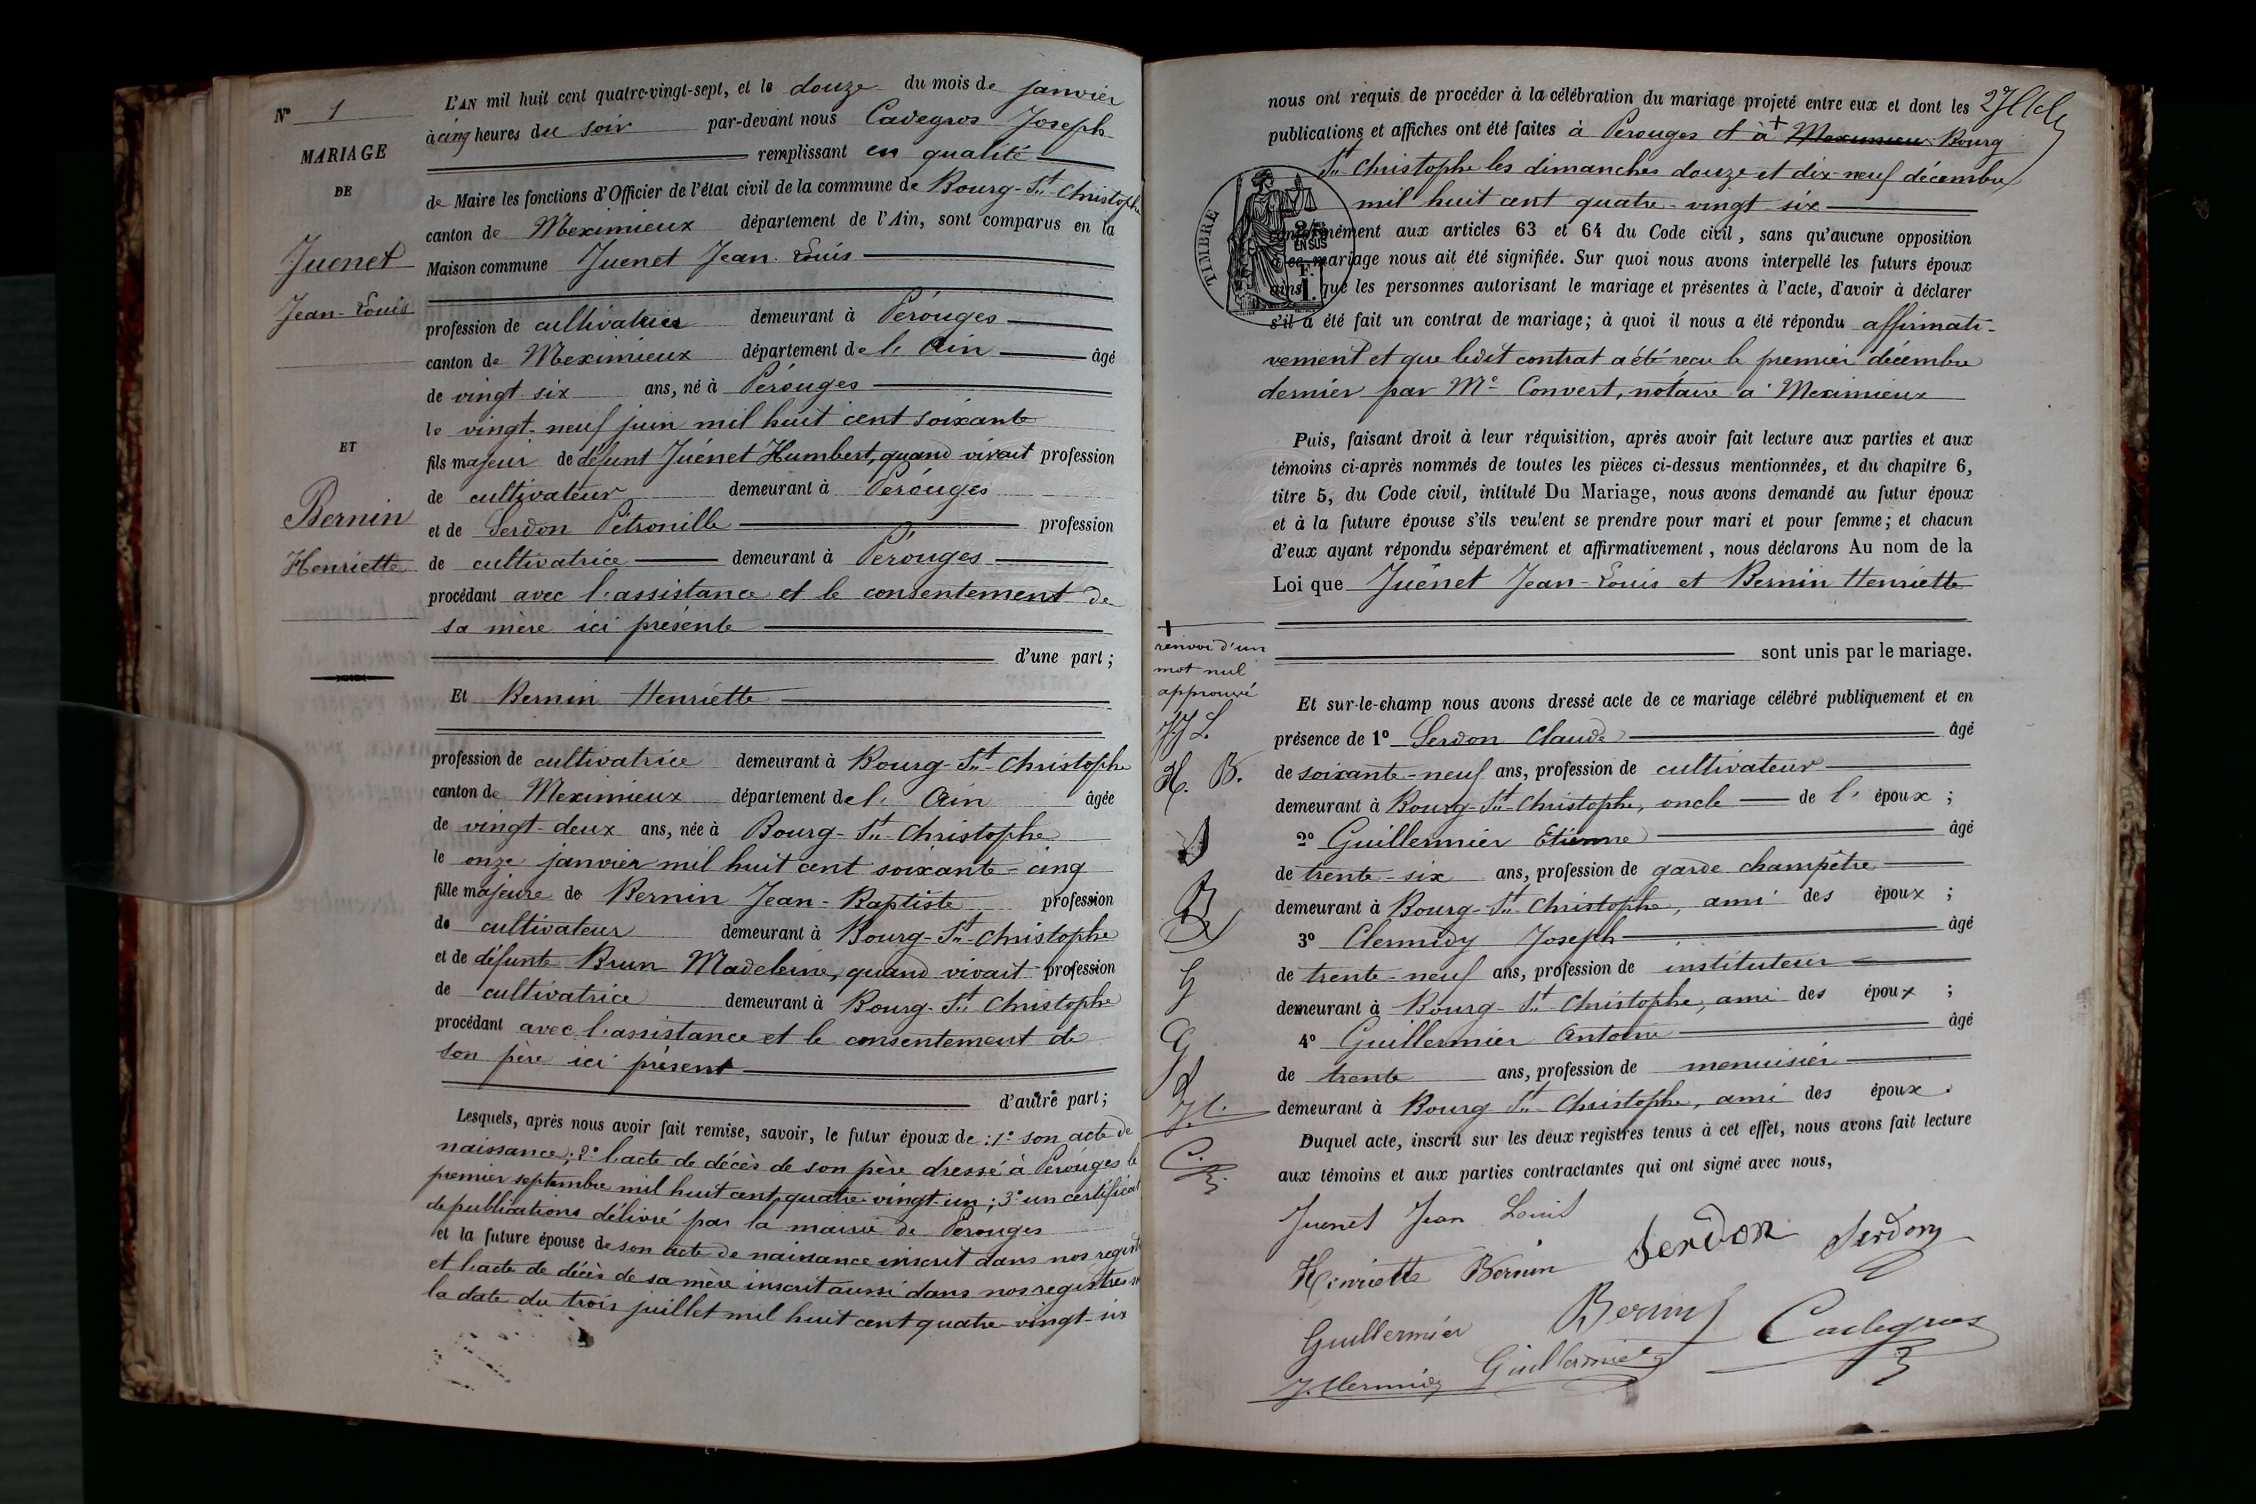 N° 1
MARIAGE
DE
Juenet
Jean-Louis
ET
Bernin
Henriette
L'AN mil huit cent quatre-vingt-sept, et le douze du mois de janvier
à cinq heures du soir par-devant nous Cadegros Joseph
remplissant en qualité
de Maire les fonctions d'Officier de l'état civil de la commune de Bourg-St-Christophe
canton de Meximieux département de l'Ain, sont comparus en la
Maison commune Juenet Jean-Louis
profession de cultivateur demeurant à Pérouges
canton de Meximieux département de l'Ain âgé
de vingt-six ans, né à Pérouges
le vingt-neuf juin mil huit cent soixante
fils majeur de défunt Juénet Humbert, quand vivait profession
de cultivateur demeurant à Pérouges
et de Serdon Pétronille profession
de cultivatrice demeurant à Pérouges
procédant avec l'assistance et le consentement de
sa mère ici présente
d'une part ;
Et Bernin Henriette
profession de cultivatrice demeurant à Bourg-St-Christophe
canton de Meximieux département de l'Ain âgée
de vingt-deux ans, née à Bourg-St-Christophe
le onze janvier mil huit cent soixante-cinq
fille majeure de Bernin Jean-Baptiste profession
de cultivateur demeurant à Bourg-St-Christophe
et de défunte Brun Madeleine, quand vivait profession
de cultivatrice demeurant à Bourg-St-Christophe
procédant avec l'assistance et le consentement de
son père ici présent
d'autre part ;
Lesquels, après nous avoir fait remise, savoir, le futur époux de : 1° son acte de
naissance ; 2° l'acte de décès de son père dressé à Pérouges le
premier septembre mil huit cent quatre-vingt-un ; 3° un certificat
de publications délivré par la mairie de Perouges
et la future épouse de son acte de naissance inscrit dans nos registres
et l'acte de décès de sa mère inscrit aussi dans nos registres
la date du trois juillet mil huit cent quatre-vingt-six
nous ont requis de procéder à la célébration du mariage projeté entre eux et dont les
publications et affiches ont été faites à Perouges et à + Meximieux Bourg
St-Christophe les dimanches douze et dix-neuf décembre
mil huit cent quatre-vingt-six
TIMBRE
2/10es
EN SUS
F.
1.
conformément aux articles 63 et 64 du Code civil, sans qu'aucune opposition
à ce mariage nous ait été signifiée. Sur quoi nous avons interpellé les futurs époux
ainsi que les personnes autorisant le mariage et présentes à l'acte, d'avoir à déclarer
s'il a été fait un contrat de mariage ; à quoi il nous a été répondu affirmati-
vement et que ledit contrat a été reçu le premier décembre
dernier par Me Convert, notaire à Meximieux
Puis, faisant droit à leur réquisition, après avoir fait lecture aux parties et aux
témoins ci-après nommés de toutes les pièces ci-dessus mentionnées, et du chapitre 6,
titre 5, du Code civil, intitulé Du Mariage, nous avons demandé au futur époux
et à la future épouse s'ils veulent se prendre pour mari et pour femme ; et chacun
d'eux ayant répondu séparément et affirmativement, nous déclarons Au nom de la
Loi que Juénet Jean-Louis et Bernin Henriette
sont unis par le mariage.
+
renvoi d'un
mot nul
approuvé
H. B.
Et sur-le-champ nous avons dressé acte de ce mariage célébré publiquement et en
présence de 1° Serdon Claude âgé
de soixante-neuf ans, profession de cultivateur
demeurant à Bourg-St-Christophe, oncle de l'époux ;
2° Guillermier Etienne âgé
de trente-six ans, profession de garde champêtre
demeurant à Bourg-St-Christophe, ami des époux ;
3° Clermidy Joseph âgé
de trente-neuf ans, profession de instituteur
demeurant à Bourg-St-Christophe, ami des époux ;
4° Guillermier Antoine âgé
de trente ans, profession de menuisier
demeurant à Bourg St-Christophe, ami des époux.
Duquel acte, inscrit sur les deux registres tenus à cet effet, nous avons fait lecture
aux témoins et aux parties contractantes qui ont signé avec nous,
Juenet Jean Louis
Henriette Bernin Serdon Serdon
Guillermier Bernin Cadegros
J. Clermidy Guillermier